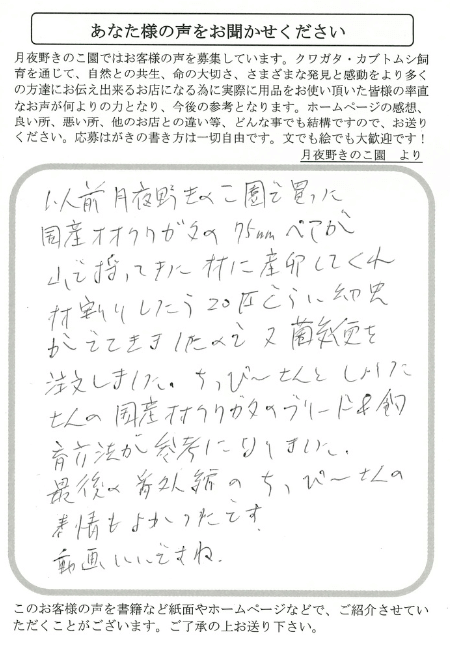 あなた様の声をお聞かせください
月夜野きのこ園ではお客様の声を募集しています。クワガタ・カブトムシ飼
育を通じて、自然との共生、命の大切さ、さまざまな発見と感動をより多く
の方達にお伝え出来るお店になる為に実際に用品をお使い頂いた皆様の率直
なお声が何よりの力となり、今後の参考となります。ホームページの感想、
良い所、悪い所、他のお店との違い等、どんな事でも結構ですので、お送り
ください。応募はがきの書き方は一切自由です。文でも絵でも大歓迎です！
月夜野きのこ園　より
以前月夜野きのこ園で買った
国産オオクワガタの75mmペアが
山で採ってきた材に産卵してくれ
材割りしたら20匹ぐらい幼虫
がでてきましたので又菌糸便を
注文しました。ちっぴーさんと
さんの国産オオクワガタのブリード&飼
育方法が参考になりました。
最後の番外編のちっぴーさんの
表情もよかったです。
動画いいですね。
このお客様の声を書籍など紙面やホームページなどで、ご紹介させてい
ただくことがございます。ご了承の上お送り下さい。